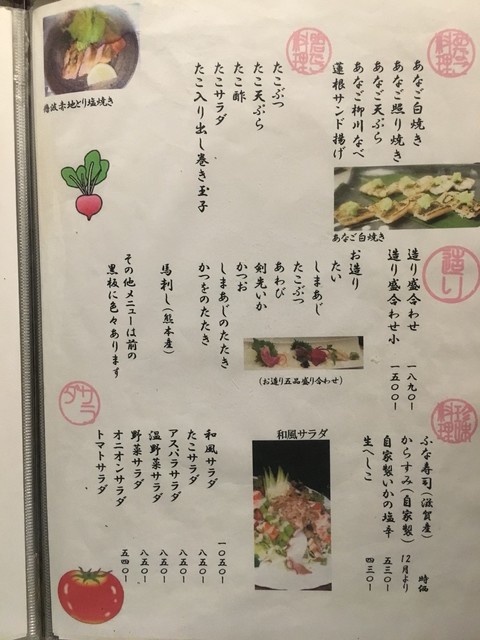 あなご料理
あなご白焼き
あなご照り焼き
あなご天ぷら
あなご柳川なべ
蓮根サンド揚げ
あなご白焼き
料理
たこぶつ
たこ天ぷら
たこ酢
たこサラダ
たこ入り出し巻き玉子
丹波赤地とり塩焼き
造り
造り盛合わせ 一八九〇-
造り盛合わせ小 一五〇〇-
お造り
たい
しまあじ
たこぶつ
あわび
剣先いか
かつお
しまあじのたたき
かつをのたたき
(お造り五品盛り合わせ)
馬刺し(熊本産)
その他メニューは前の
黒板に色々あります
珍味料理
ふな寿司(滋賀産) 時価
からすみ(自家製) 12月より
自家製いかの塩辛 五三〇-
生へしこ 四三〇-
和風サラダ
サラダ
和風サラダ 一〇五〇-
たこサラダ 八五〇-
アスパラサラダ 八五〇-
温野菜サラダ 八五〇-
野菜サラダ 八五〇-
オニオンサラダ 五四〇-
トマトサラダ 五四〇-